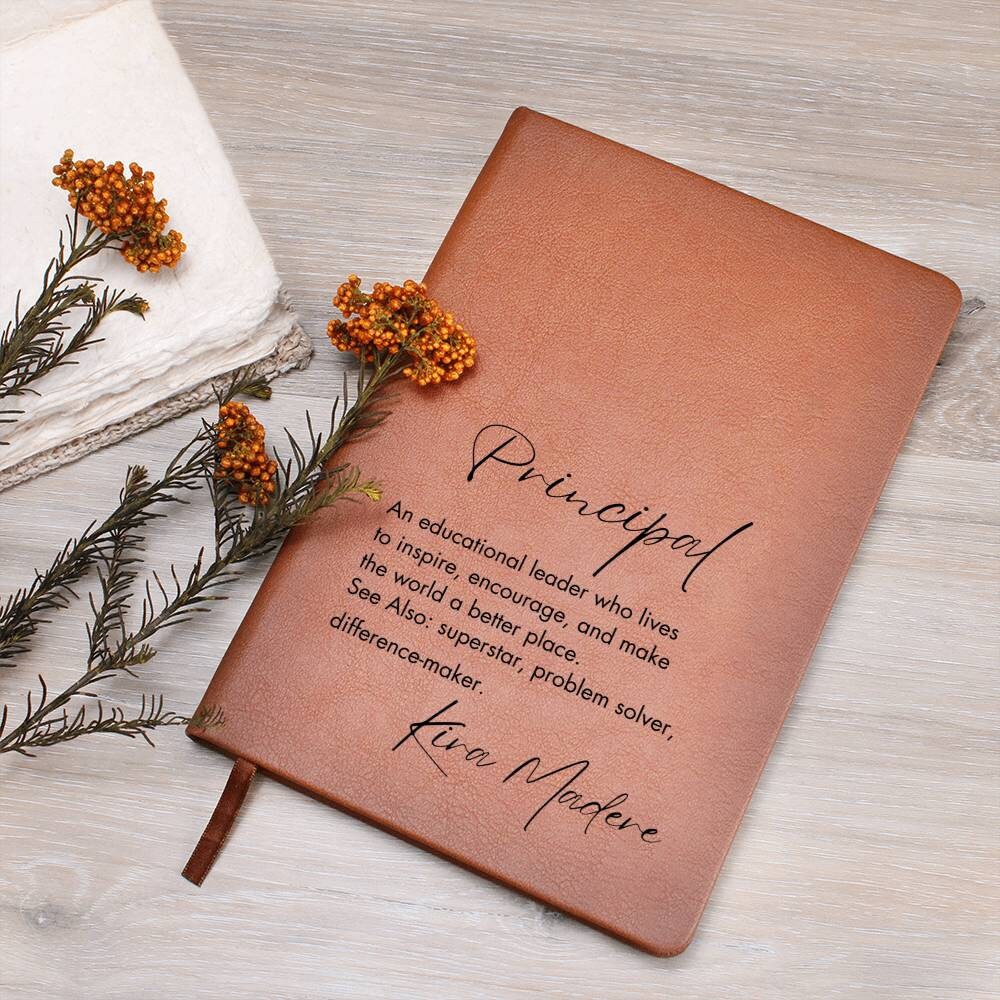 Principal
An educational leader who lives
to inspire, encourage, and make
the world a better place.
See Also: superstar, problem solver,
difference-maker.
Kira Madere